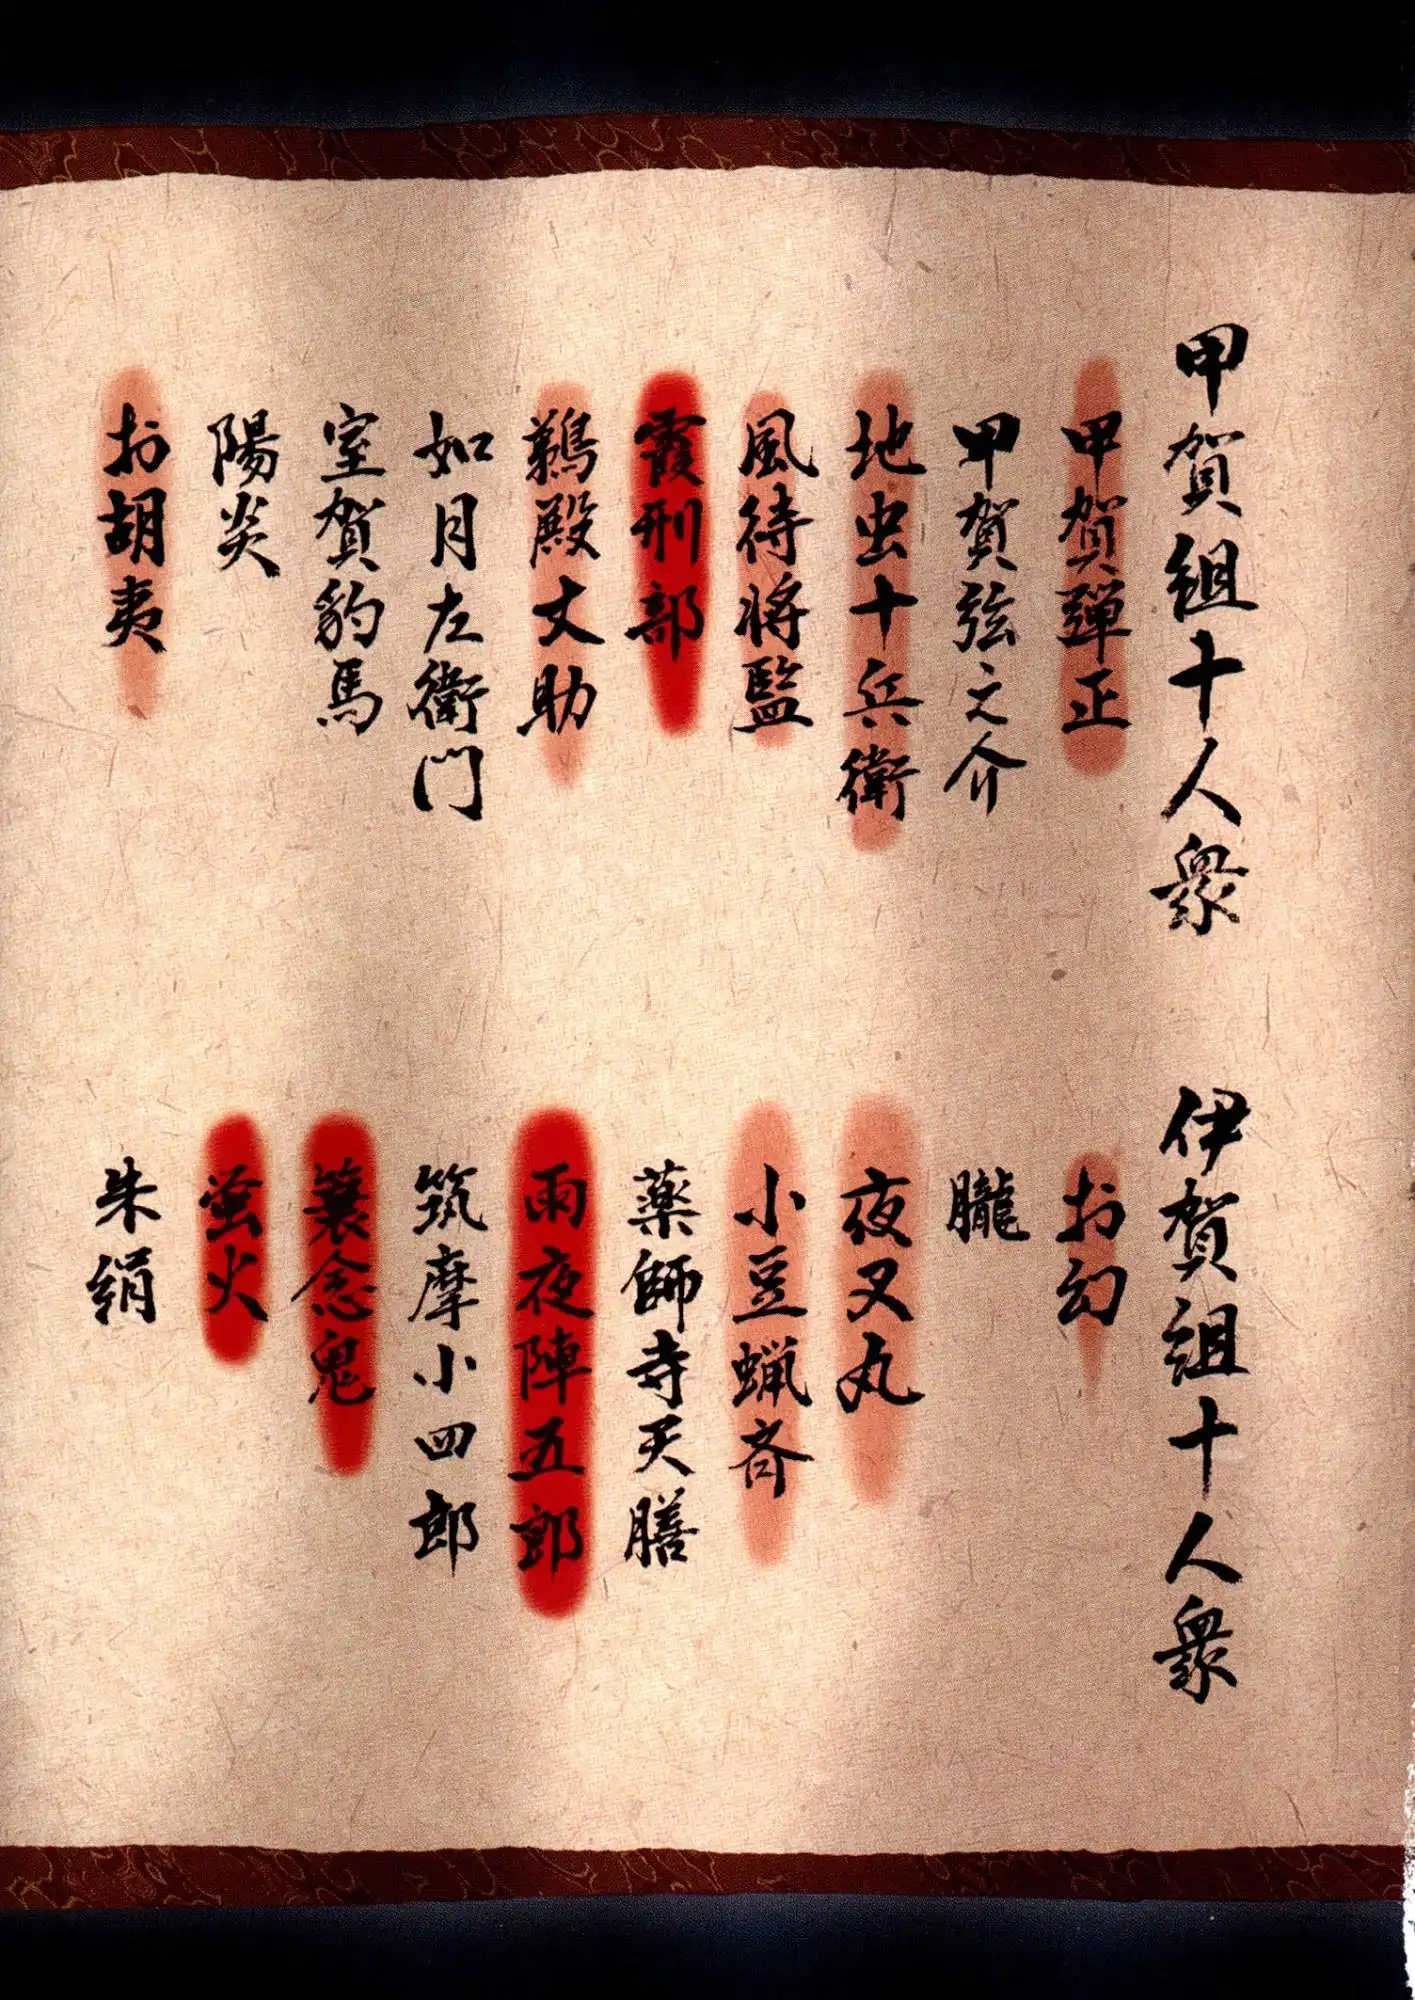 甲賀組十人衆
甲賀弾正
甲賀弦之介
地虫十兵衛
風待将監
霞刑部
鵜殿丈助
如月左衛門
室賀豹馬
陽炎
お胡夷
伊賀組十人衆
お幻
朧
夜叉丸
小豆蝋斉
薬師寺天膳
雨夜陣五郎
筑摩小四郎
簑念鬼
蛍火
朱絹